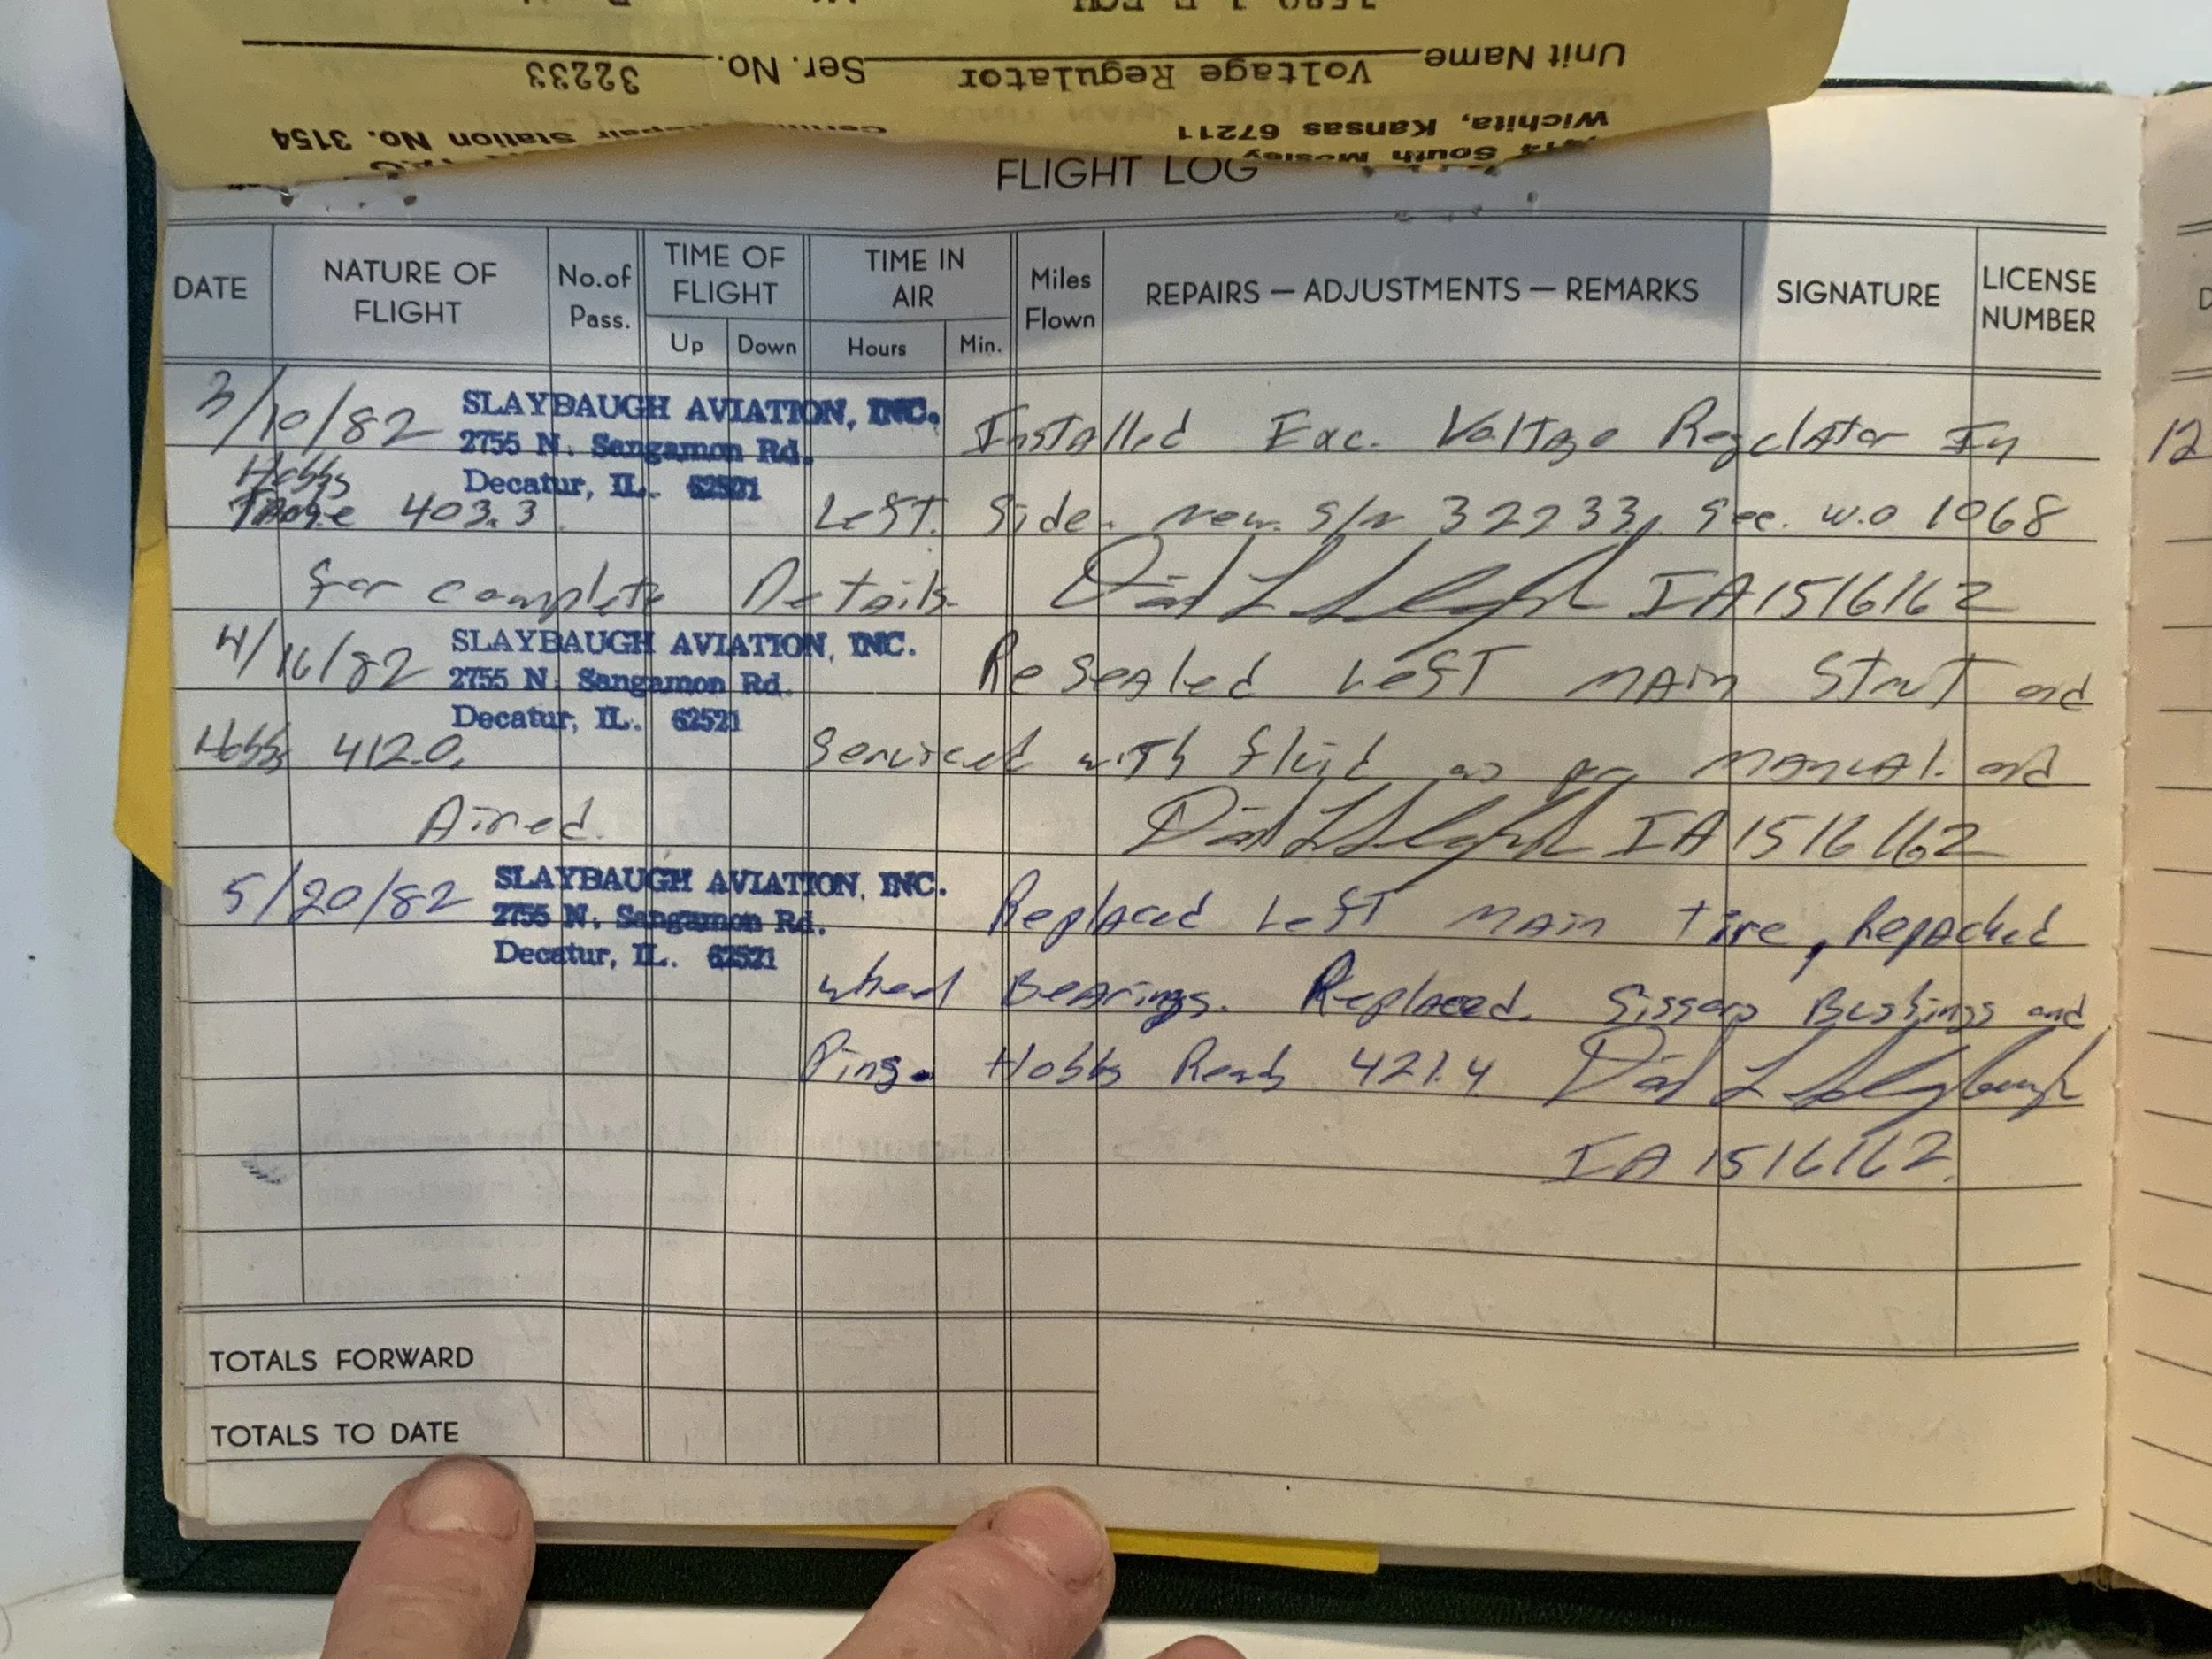 1580 J E EQU
Unit Name Voltage Regulator Ser. No. 32233
Wichita, Kansas 67211 Repair Station No. 3154
South Mosley
FLIGHT LOG
DATE NATURE OF FLIGHT No. of Pass. TIME OF FLIGHT TIME IN AIR Miles Flown REPAIRS — ADJUSTMENTS — REMARKS SIGNATURE LICENSE NUMBER
Up Down Hours Min.
3/10/82 SLAYBAUGH AVIATION, INC. Installed Exc. Voltage Regulator In
2755 N. Sangamon Rd.
Hobbs Decatur, IL. 62521
403.3 Left Side. new S/N 32233, See. W.O 1068
for complete Details. IA1516162
4/16/82 SLAYBAUGH AVIATION, INC. Resealed Left MAin Strut and
2755 N. Sangamon Rd.
Decatur, IL. 62521
Hobbs 412.0. Serviced with fluid as per MANUAL. and
Aired. IA1516162
5/20/82 SLAYBAUGH AVIATION, INC. Replaced Left MAin tire, Repacked
2755 N. Sangamon Rd.
Decatur, IL. 62521
wheel Bearings. Replaced. Sissors Bushings and
Pins. Hobbs Reads 421.4 David L Slaybaugh
IA 1516162.
TOTALS FORWARD
TOTALS TO DATE
12